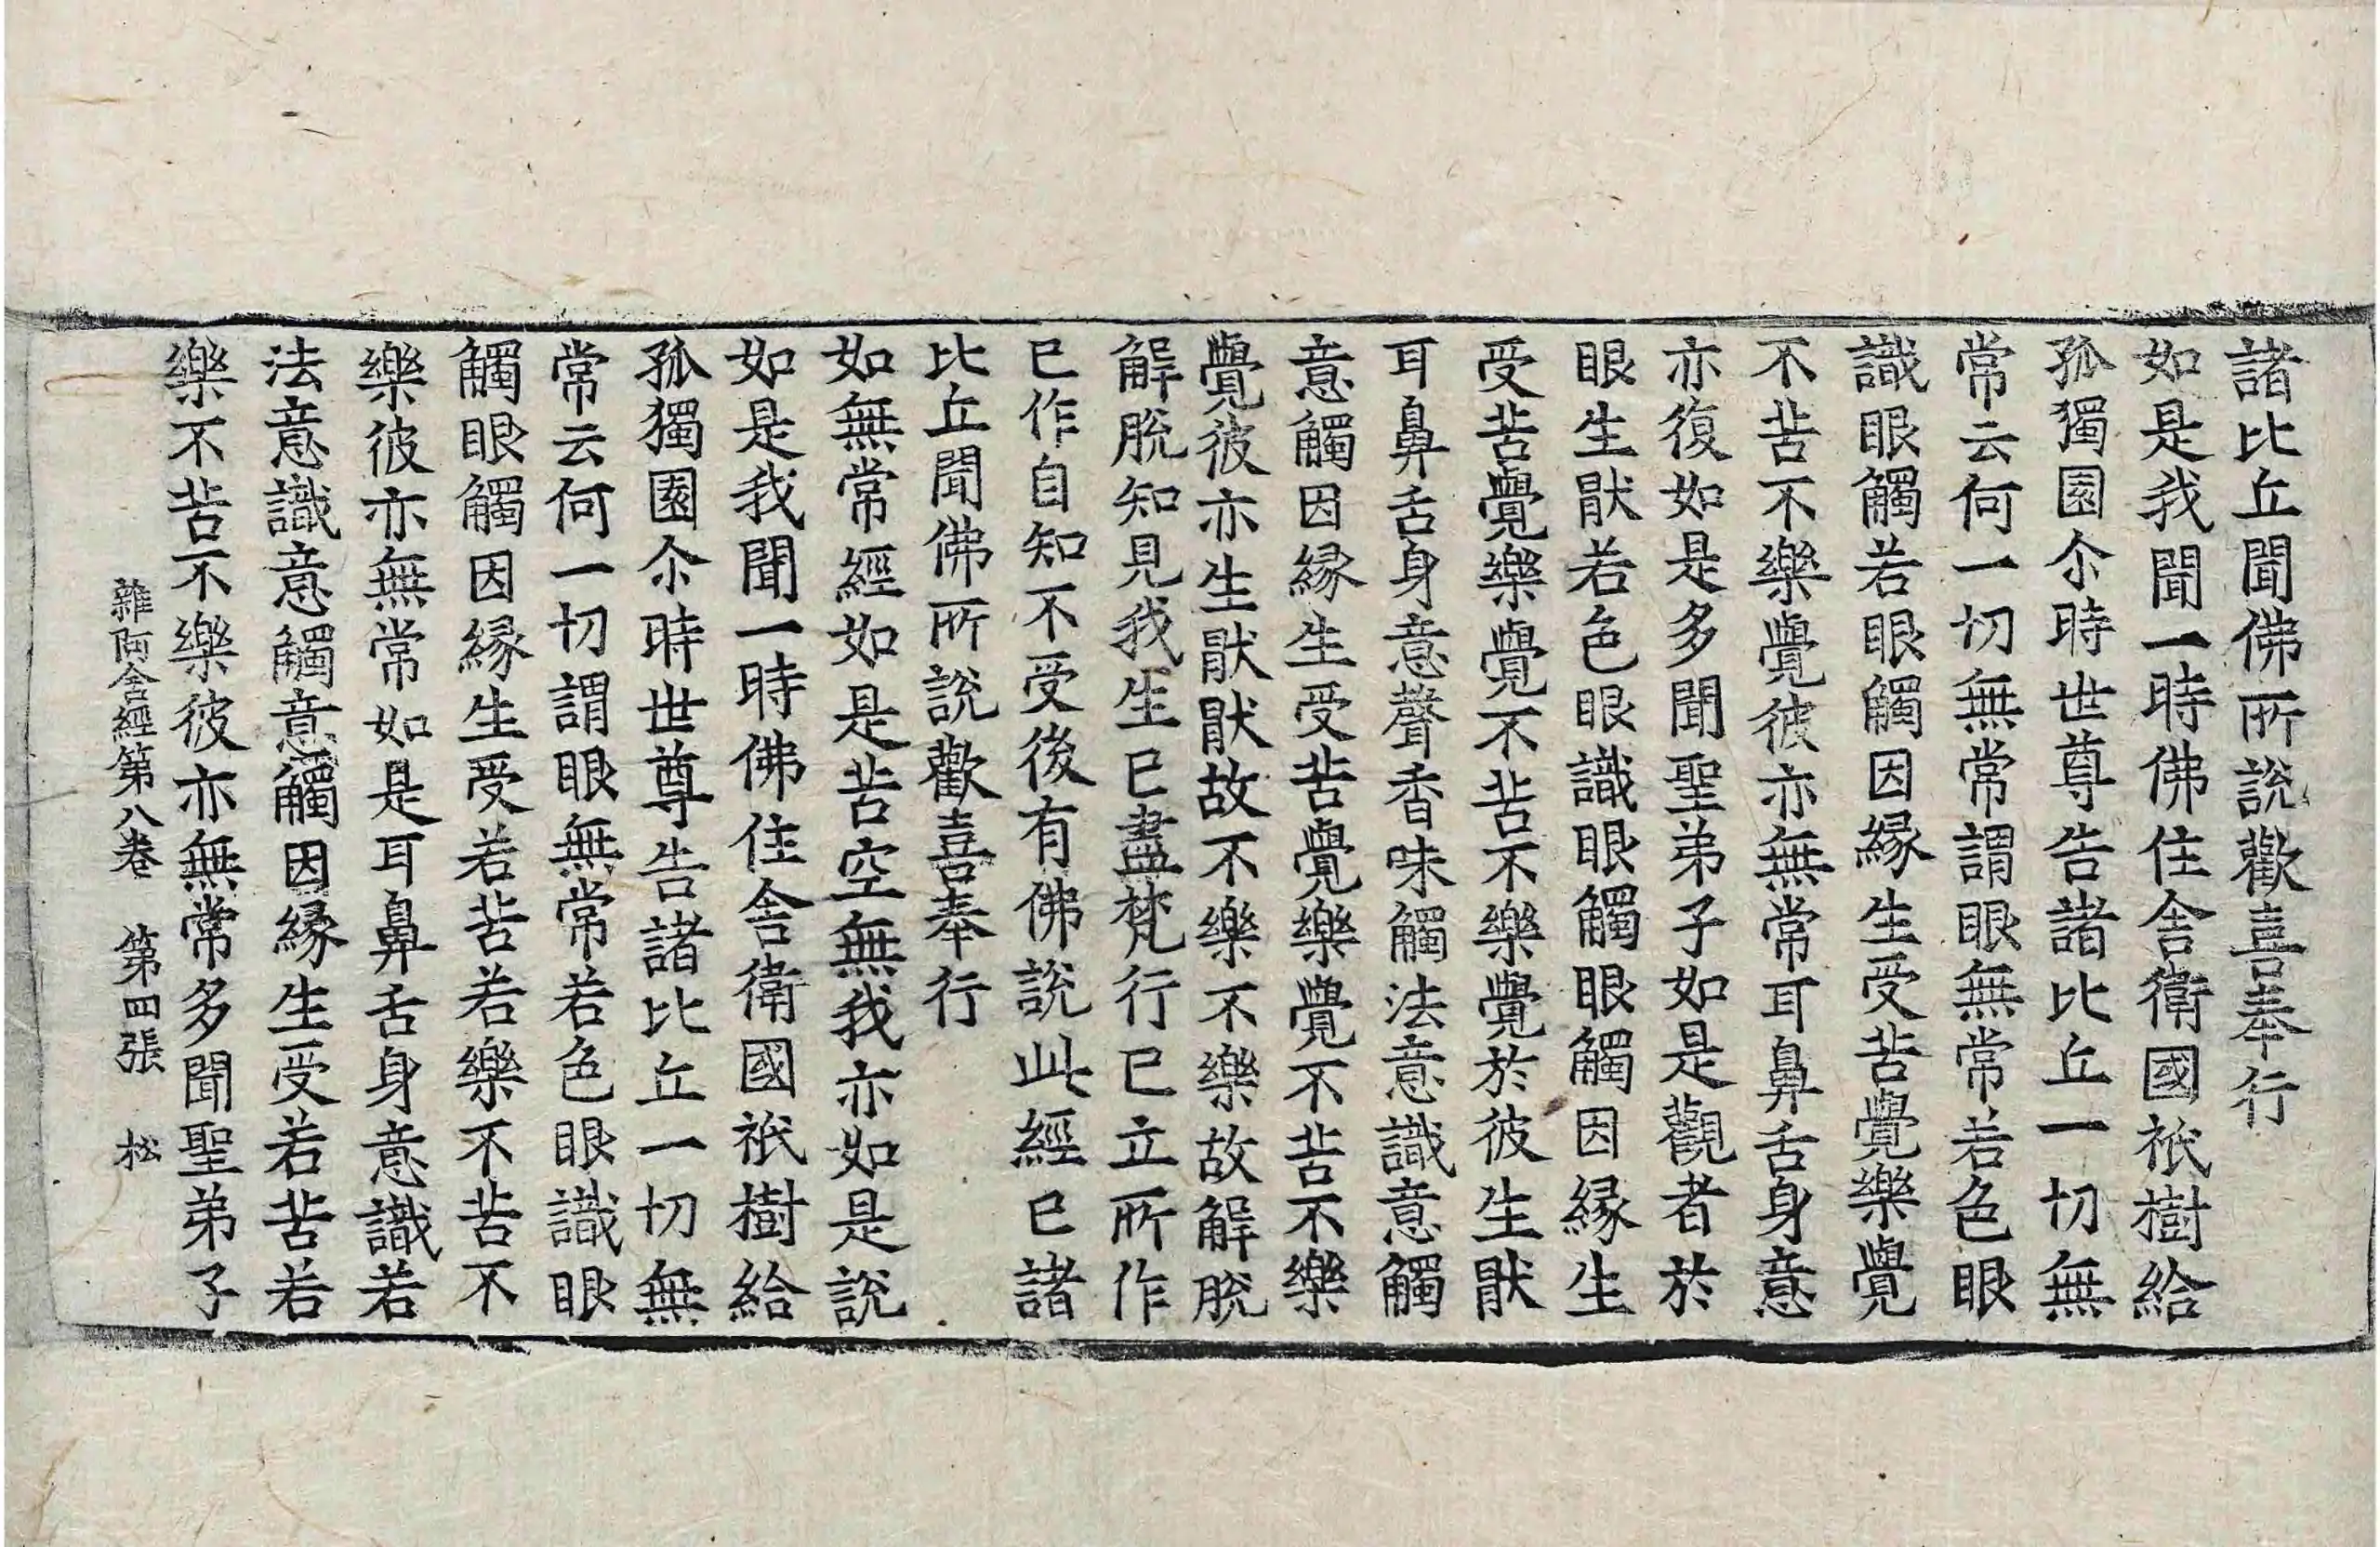 諸比丘聞佛所說歡喜奉行
如是我聞一時佛住舍衛國祇樹給
孤獨園尒時世尊告諸比丘一切無
常云何一切無常謂眼無常若色眼
識眼觸若眼觸因緣生受苦覺樂覺
不苦不樂覺彼亦無常耳鼻舌身意
亦復如是多聞聖弟子如是觀者於
眼生猒若色眼識眼觸眼觸因緣生
受苦覺樂覺不苦不樂覺於彼生猒
耳鼻舌身意聲香味觸法意識意觸
意觸因緣生受苦覺樂覺不苦不樂
覺彼亦生猒猒故不樂不樂故解脫
解脫知見我生已盡梵行已立所作
已作自知不受後有佛說此經已諸
比丘聞佛所說歡喜奉行
如無常經如是苦空無我亦如是說
如是我聞一時佛住舍衛國祇樹給
孤獨園尒時世尊告諸比丘一切無
常云何一切謂眼無常若色眼識眼
觸眼觸因緣生受若苦若樂不苦不
樂彼亦無常如是耳鼻舌身意識若
法意識意觸意觸因緣生受若苦若
樂不苦不樂彼亦無常多聞聖弟子
雜阿含經第八卷 第四張 松